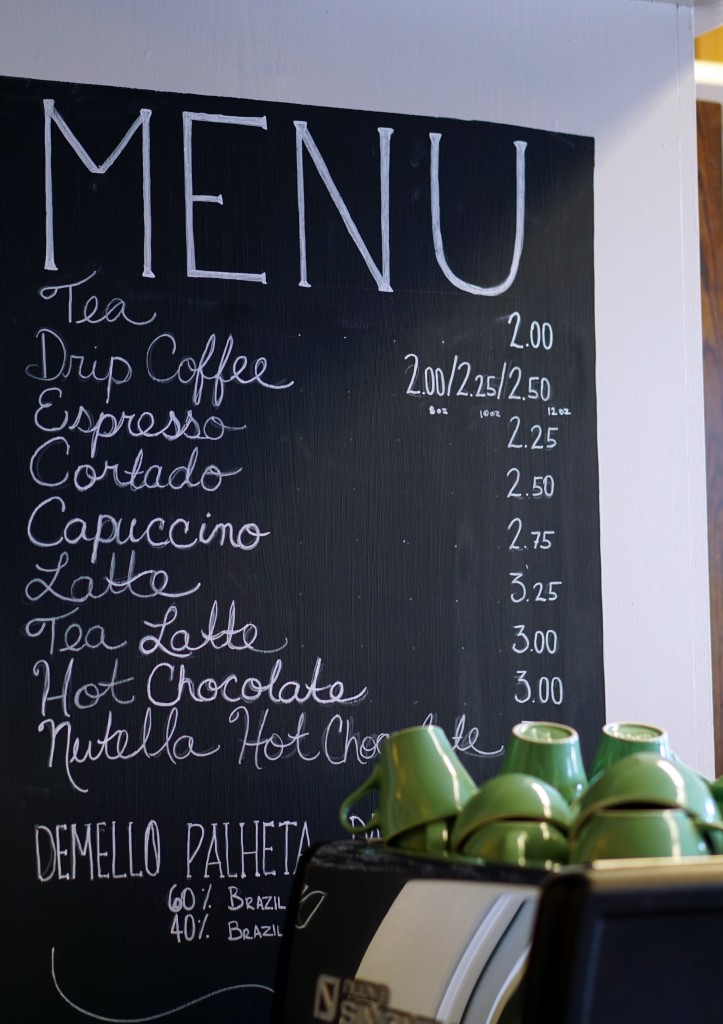 MENU
Tea 2.00
Drip Coffee 2.00/2.25/2.50
8oz 10oz 12oz
Espresso 2.25
Cortado 2.50
Capuccino 2.75
Latte 3.25
Tea Latte 3.00
Hot Chocolate 3.00
Nutella Hot Chocolate
DEMELLO PALHETA
60% BRAZIL
40% BRAZIL